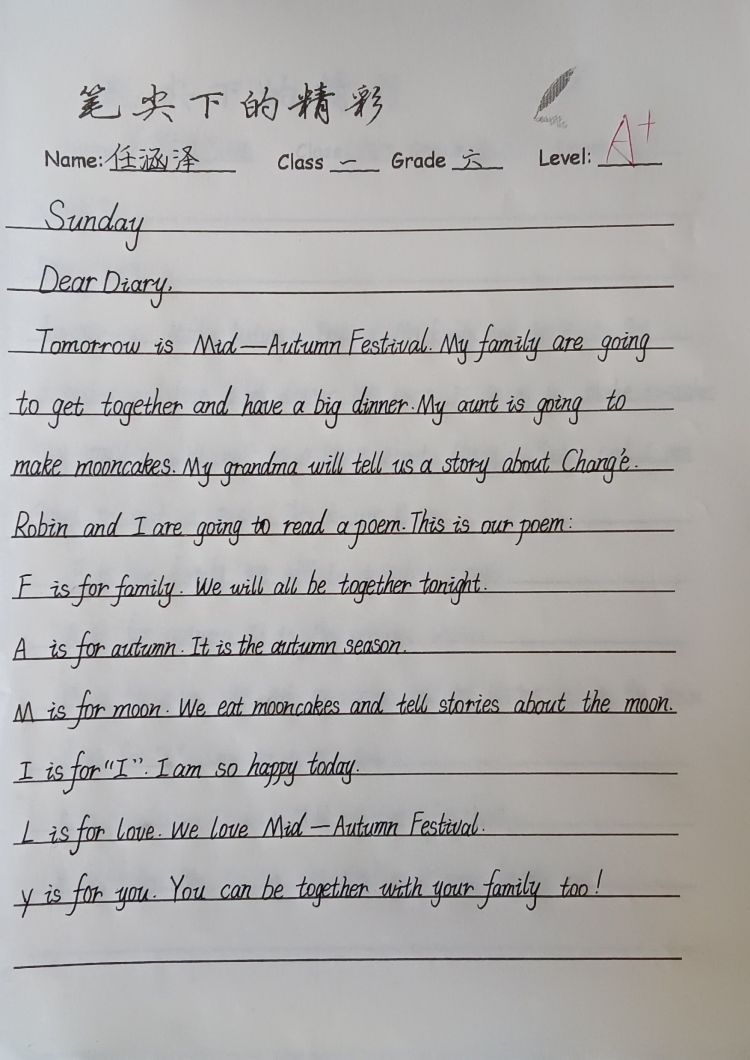 笔尖下的精彩
Name: 任涵泽 Class 一 Grade 六 Level: A+
Sunday
Dear Diary,
Tomorrow is Mid—Autumn Festival. My family are going
to get together and have a big dinner. My aunt is going to
make mooncakes. My grandma will tell us a story about Chang'e.
Robin and I are going to read a poem. This is our poem:
F is for family. We will all be together tonight.
A is for autumn. It is the autumn season.
M is for moon. We eat mooncakes and tell stories about the moon.
I is for "I". I am so happy today.
L is for love. We love Mid—Autumn Festival.
y is for you. You can be together with your family too!